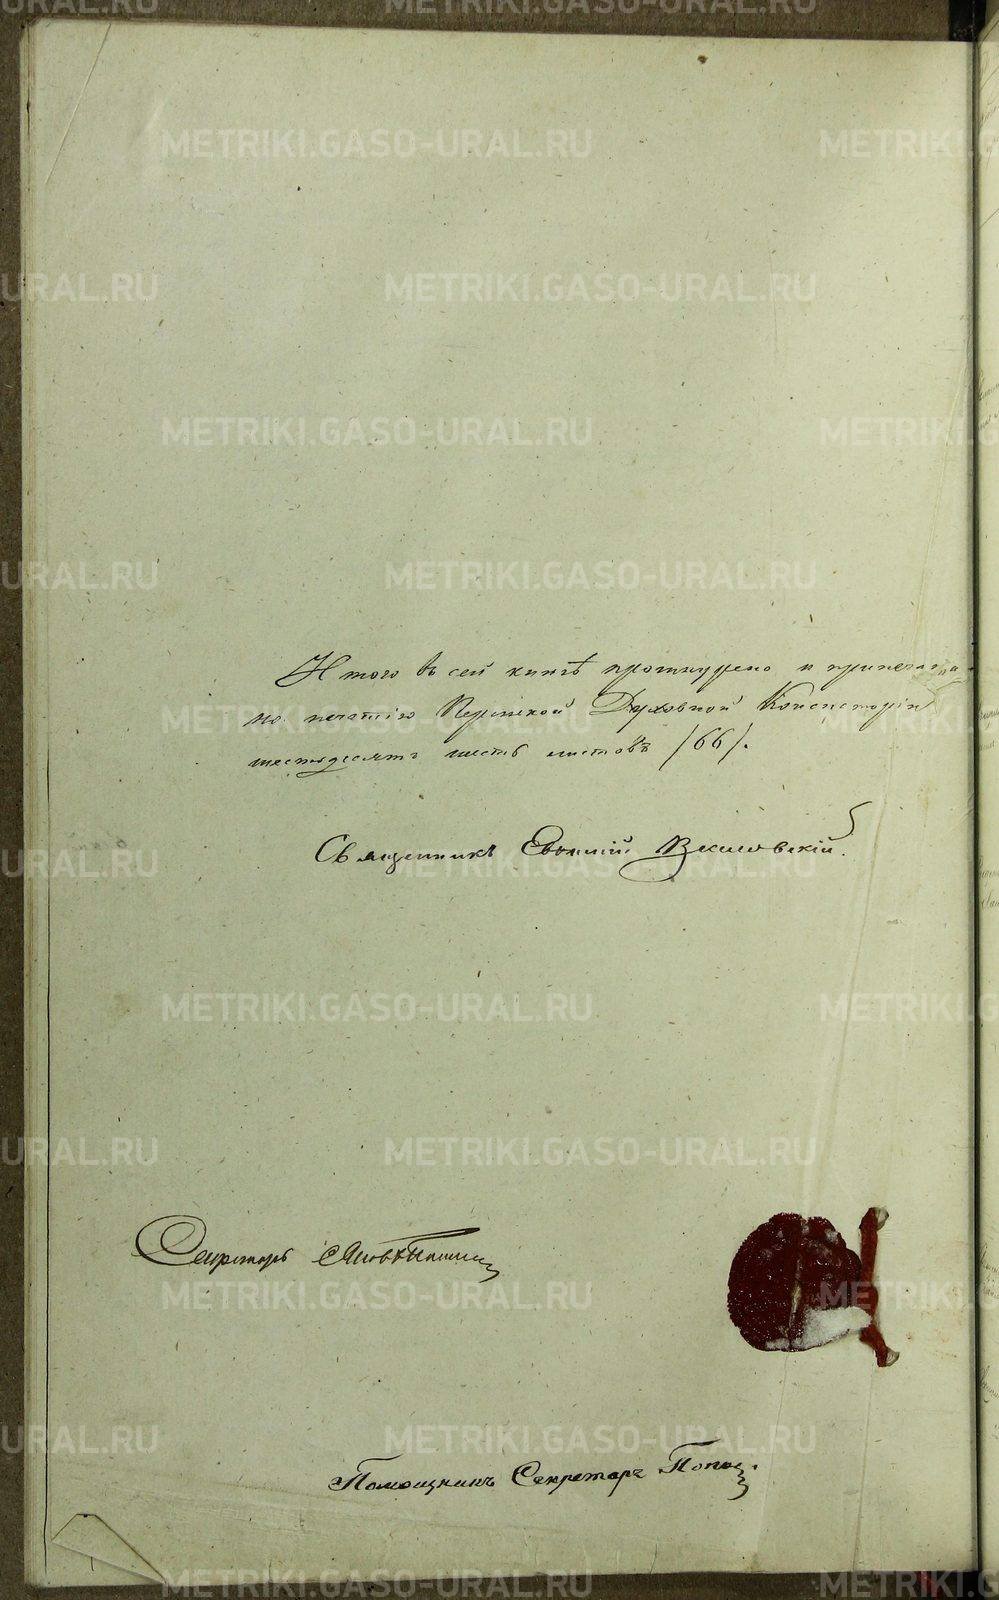 Итого въ сей книгѣ прошнурено и припечата
но печатію Пермской Духовной Консисторіи
шестьдесятъ шесть листовъ /66/.
Священникъ Евѳимій
Секретарь
Помощникъ Секретаря Попов
METRIKI.GASO-URAL.RU